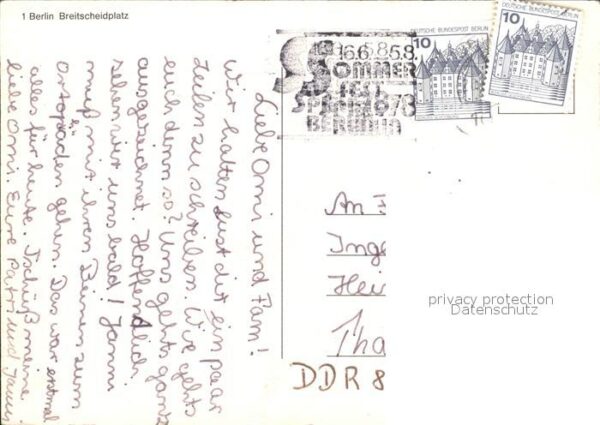 1 Berlin Breitscheidplatz
DEUTSCHE BUNDESPOST BERLIN
10
DEUTSCHE BUNDESPOST BERLIN
10
16.6.-5.8.
SOMMER
FEST
SPIELE 1978
BERLIN
Liebe Omi und Pam!
Wir hatten Lust dir ein paar
Zeilen zu schreiben. Wie gehts
euch denn so? Uns gehts ganz
ausgezeichnet. Hoffendlich
sehen wir uns bald! Janni
muß mit ihren Beinen zum
Ortopäden gehen. Das war erstmal
alles für heute. Tschüß meine
liebe Omi. Eure Patri und Janni
An
Inge
Hei
Tha
DDR 8
privacy protection
Datenschutz